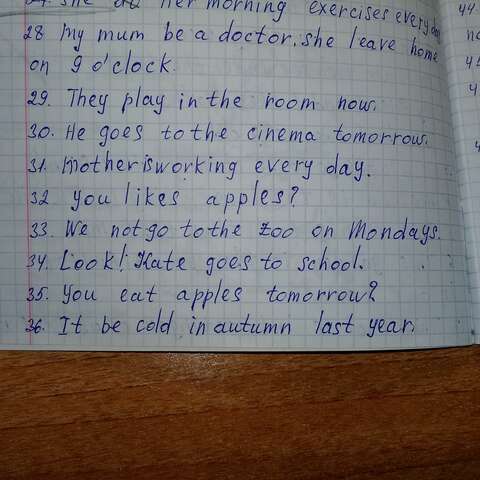 She do her morning exercises every day
28. My mum be a doctor, she leave home
on 9 o'clock.
29. They play in the room now.
30. He goes to the cinema tomorrow.
31. Mother is working every day.
32 You likes apples?
33. We not go to the zoo on Mondays.
34. Look! Kate goes to school.
35. You eat apples tomorrow?
36. It be cold in autumn last year.
44.